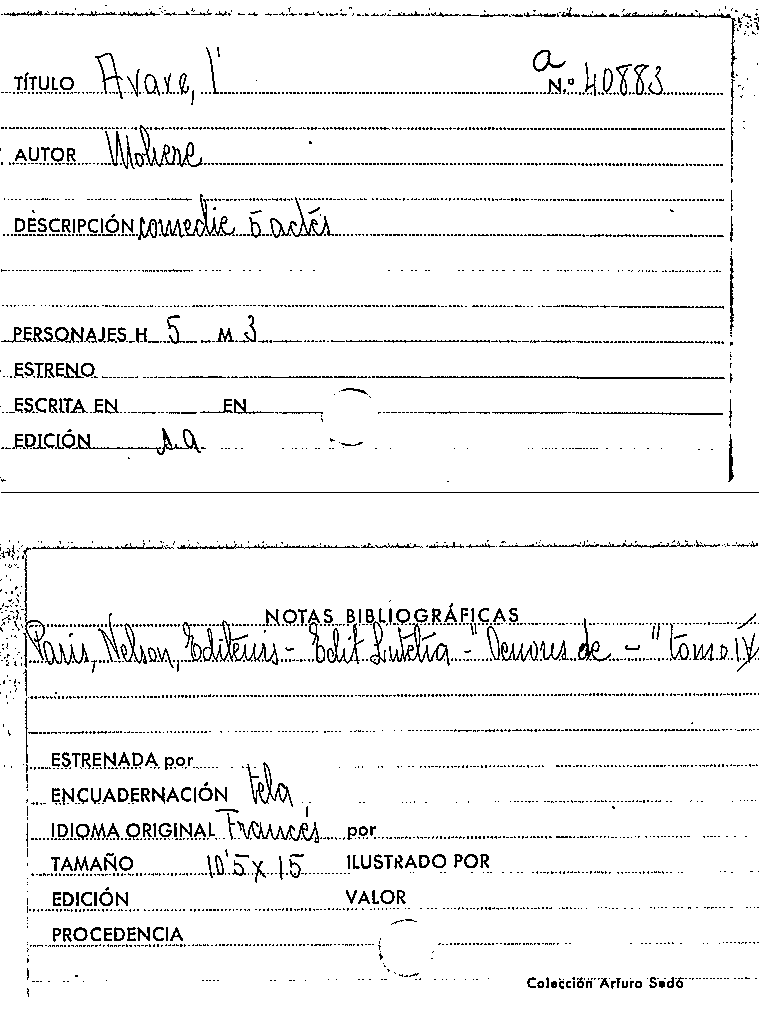 TÍTULO Avare, l' a N.º 40883
AUTOR Moliere
DESCRIPCIÓN comedie 5 actes
PERSONAJES H 5 M 3
ESTRENO
ESCRITA EN EN
EDICIÓN s.a
NOTAS BIBLIOGRÁFICAS
Paris, Nelson, Editeurs - Edit Lutetia - " de - " tomo IV
ESTRENADA por
ENCUADERNACIÓN tela
IDIOMA ORIGINAL Francés por
TAMAÑO 10'5 x 15 ILUSTRADO POR
EDICIÓN VALOR
PROCEDENCIA
Colección Arturo Sedó